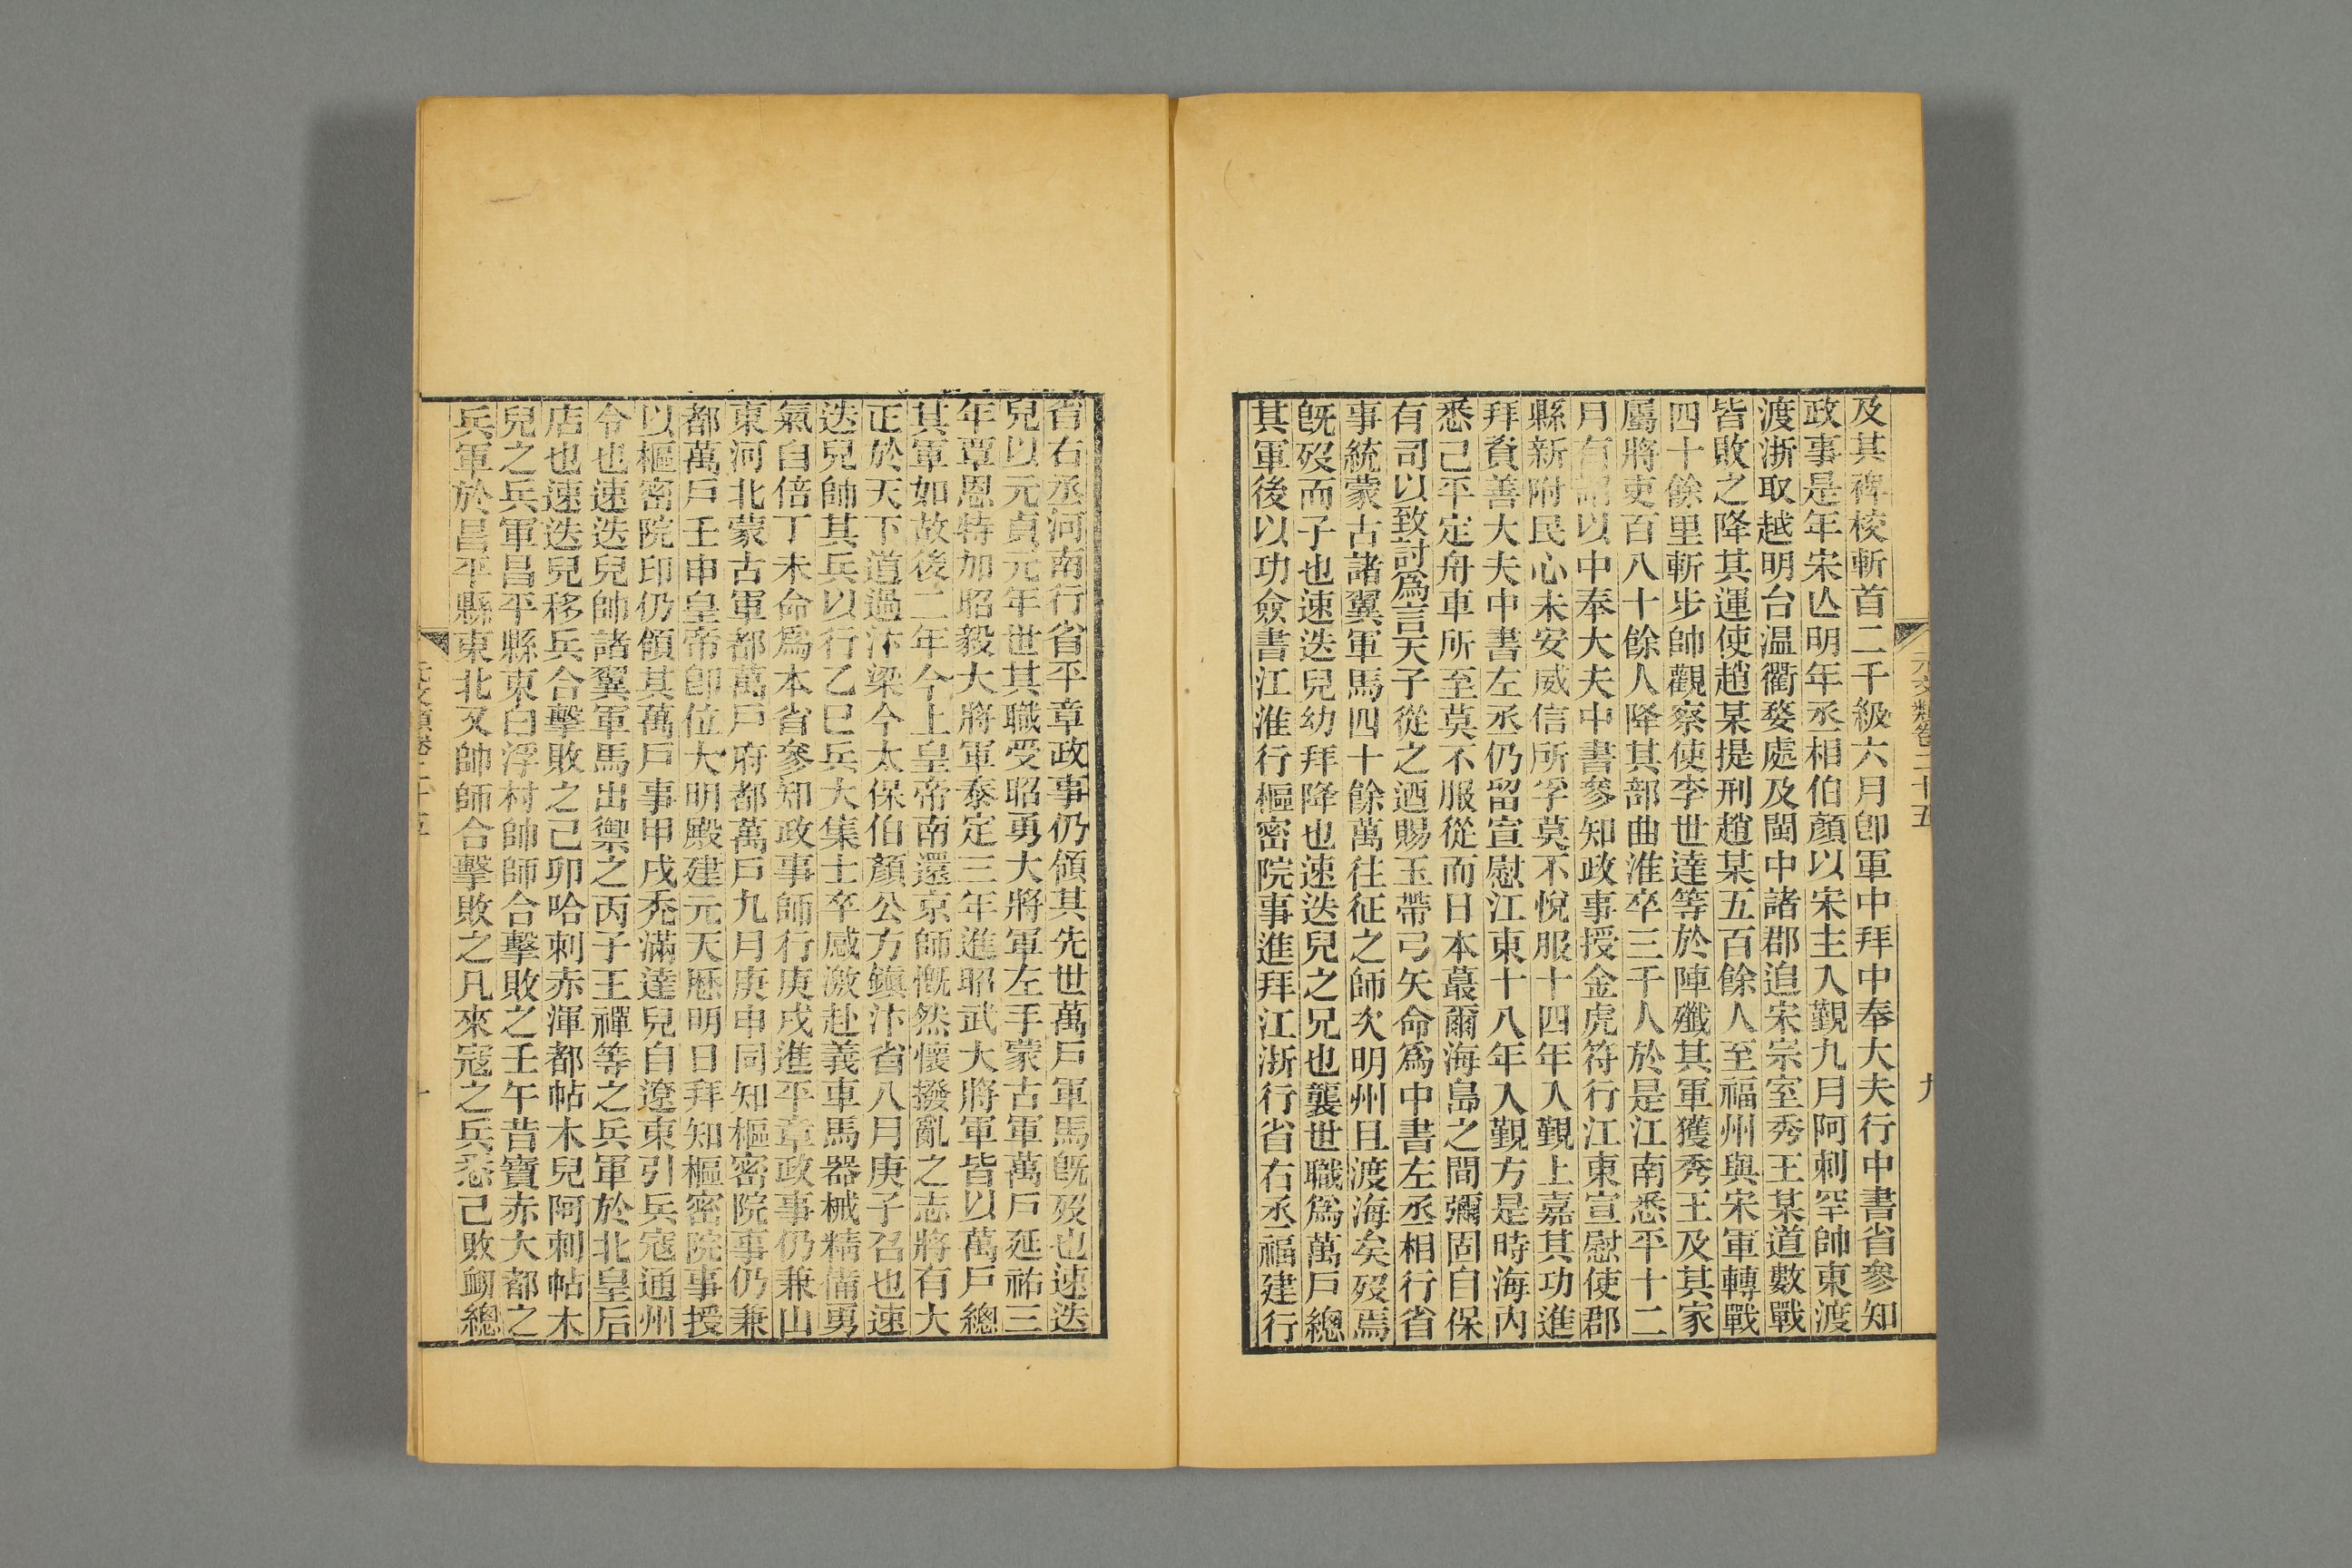 及其裨校斬首二千級六月卽軍中拜中奉大夫行中書省參知
政事是年宋亾明年丞相伯顏以宋主入覲九月阿刺罕帥東渡
渡浙取越明台温衢婺處及閩中諸郡追宋宗室秀王某道數戰
皆敗之降其運使趙某提刑趙某五百餘人至福州與宋軍轉戰
四十餘里斬步帥觀察使李世達等於陣殲其軍獲秀王及其家
屬將吏百八十餘人降其部曲淮卒三千人於是江南悉平十二
月有詔以中奉大夫中書參知政事授金虎符行江東宣慰使郡
縣新附民心未安威信所孚莫不悅服十四年入覲上嘉其功進
拜資善大夫中書左丞仍留宣慰江東十八年入覲方是時海內
悉已平定舟車所至莫不服從而日本蕞爾海島之間彌固自保
有司以致討爲言天子從之迺賜玉帶弓矢命爲中書左丞相行省
事統蒙古諸翼軍馬四十餘萬往征之師次明州且渡海矣歿焉
旣歿而子也速迭兒幼拜降也速迭兒之兄也襲世職爲萬戶總
其軍後以功僉書江淮行樞密院事進拜江浙行省右丞福建行
元文類卷三十五
九
省右丞河南行省平章政事仍領其先世萬戶軍馬旣歿也速迭
兒以元貞元年世其職受昭勇大將軍左手蒙古軍萬戶延祐三
年覃恩特加昭毅大將軍泰定三年進昭武大將軍皆以萬戶總
其軍如故後二年今上皇帝南還京師慨然懷撥亂之志將有大
正於天下道過汴梁今太保伯顏公方鎭汴省八月庚子召也速
迭兒帥其兵以行乙巳兵大集士卒感激赴義車馬器械精備勇
氣自倍丁未命爲本省參知政事師行庚戌進平章政事仍兼山
東河北蒙古軍都萬戶府都萬戶九月庚申同知樞密院事仍兼
都萬戶壬申皇帝卽位大明殿建元天曆明日拜知樞密院事授
以樞密院印仍領其萬戶事甲戌禿滿達兒自遼東引兵寇通州
令也速迭兒帥諸翼軍馬出禦之丙子王禪等之兵軍於北皇后
店也速迭兒移兵合擊敗之己卯哈刺赤渾都帖木兒阿刺帖木
兒之兵軍昌平縣東白浮村帥師合擊敗之壬午昔寶赤大都之
兵軍於昌平縣東北又帥師合擊敗之凡來寇之兵悉已敗衂總
元文類卷三十五
十